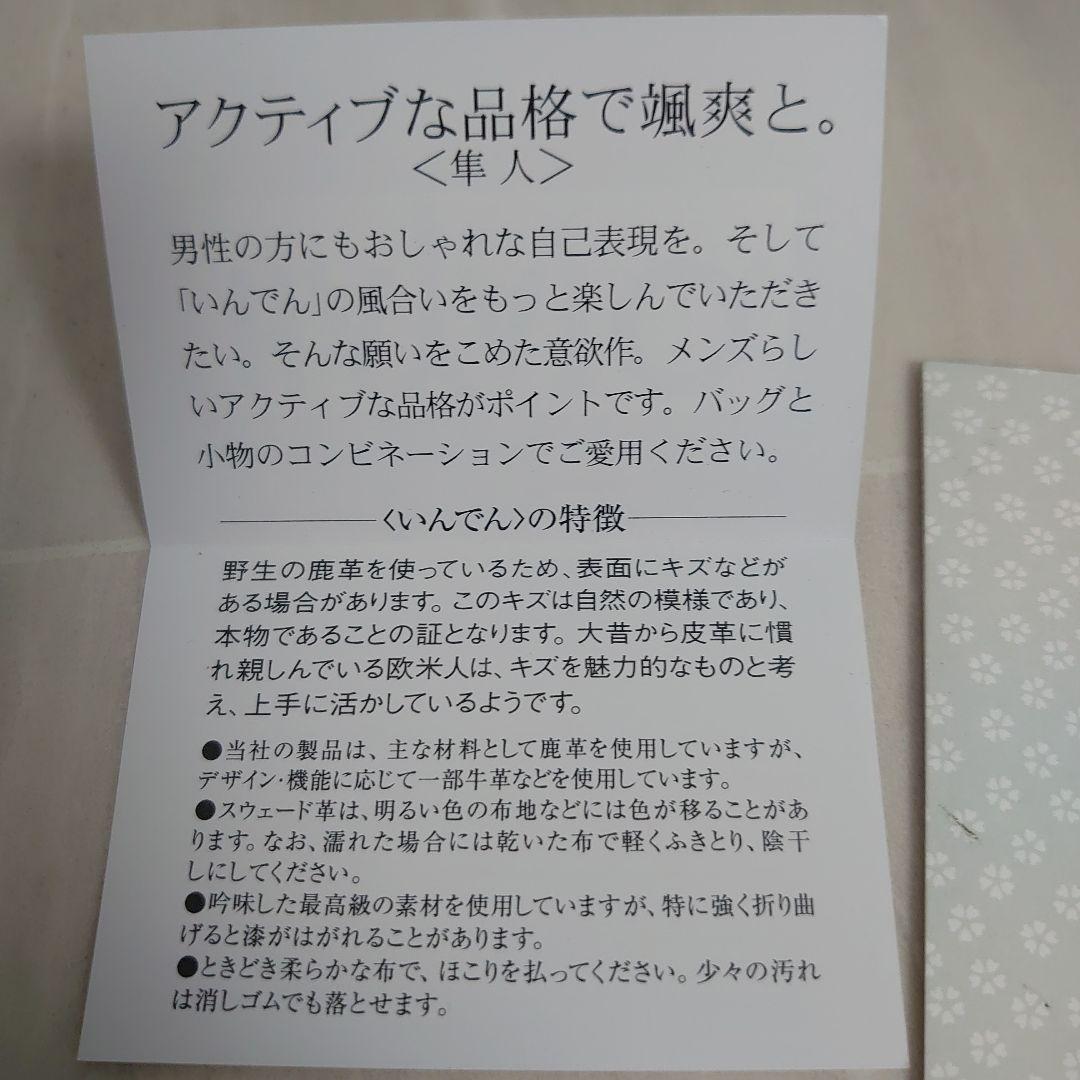 アクティブな品格で颯爽と。
＜隼 人＞
男性の方にもおしゃれな自己表現を。そして
「いんでん」の風合いをもっと楽しんでいただき
たい。そんな願いをこめた意欲作。メンズらし
いアクティブな品格がポイントです。バッグと
小物のコンビネーションでご愛用ください。
〈いんでん〉の特徴
野生の鹿革を使っているため、表面にキズなどが
ある場合があります。このキズは自然の模様であり、
本物であることの証となります。大昔から皮革に慣
れ親しんでいる欧米人は、キズを魅力的なものと考
え、上手に活かしているようです。
●当社の製品は、主な材料として鹿革を使用していますが、
デザイン・機能に応じて一部牛革などを使用しています。
●スウェード革は、明るい色の布地などには色が移ることがあ
ります。なお、濡れた場合には乾いた布で軽くふきとり、陰干
しにしてください。
●吟味した最高級の素材を使用していますが、特に強く折り曲
げると漆がはがれることがあります。
●ときどき柔らかな布で、ほこりを払ってください。少々の汚れ
は消しゴムでも落とせます。